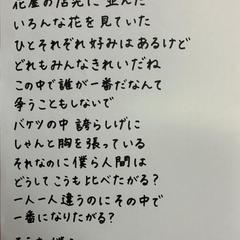 花屋の店先に並んだ
いろんな花を見ていた
ひとそれぞれ好みはあるけど
どれもみんなきれいだね
この中で誰が一番だなんて
争うこともしないで
バケツの中 誇らしげに
しゃんと胸を張っている
それなのに僕ら人間は
どうしてこうも比べたがる?
一人一人違うのにその中で
一番になりたがる?